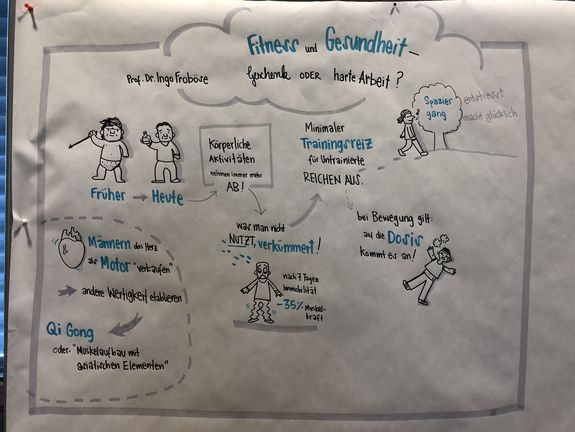 Fitness und Gesundheit –
Prof. Dr. Ingo Froböse
Geschenk ODER harte Arbeit?
Früher → Heute
Körperliche
Aktivitäten
nehmen immer mehr
AB!
Minimaler
Trainingsreiz
für Untrainierte
REICHEN AUS.
Spazier
gang
entstresst
macht glücklich
Männern das Herz
als "Motor" verkaufen
→ andere Wertigkeit etablieren
Qi Gong
oder "Muskelaufbau mit
asiatischen Elementen"
was man nicht
NUTZT, verkümmert!
nach 7 Tagen
Immobilität
-35% Muskel-
kraft
bei Bewegung gilt:
auf die Dosis
kommt es an!